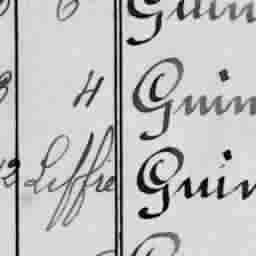 6 Guin
3 4 Guin
12 Leffre Guin